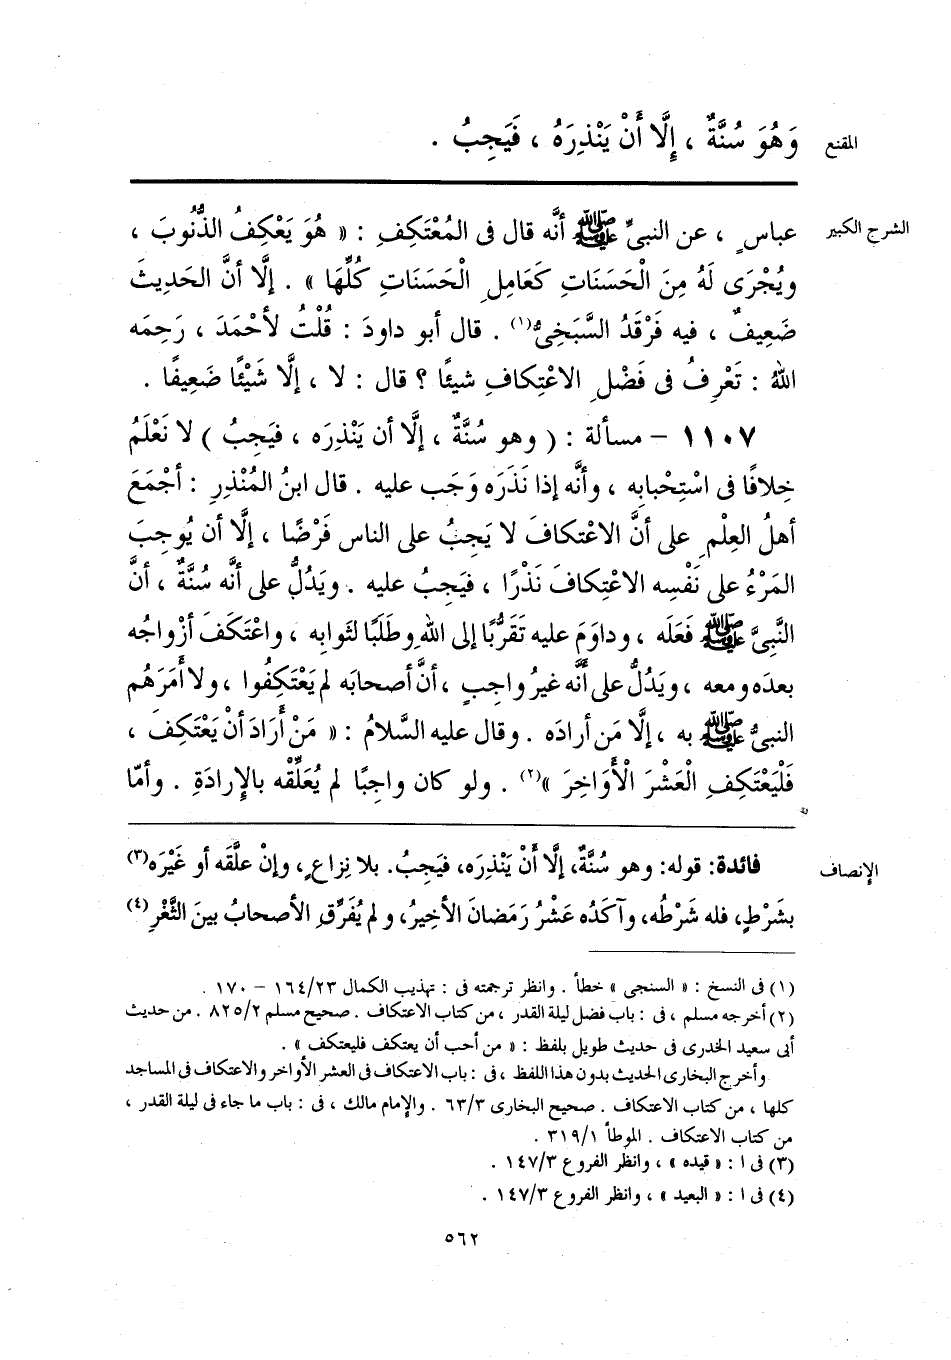 المقنع وَهُوَ سُنَّةٌ ، إِلَّا أَنْ يَنْذِرَهُ ، فَيَجِبُ .
الشرح الكبير عباسٍ ، عن النبىِّ ﷺ أنَّه قال فى المُعْتَكِفِ : « هُوَ يَعْكِفُ الذُّنُوبَ ،
ويُجْرَى لَهُ مِنَ الْحَسَنَاتِ كَعَامِلِ الْحَسَنَاتِ كُلِّهَا » . إلَّا أنَّ الحَدِيثَ
ضَعِيفٌ ، فيه فَرْقَدُ السَّبَخِىُّ(١) . قال أبو داودَ : قُلْتُ لأحْمَدَ ، رَحِمَه
اللهُ : تَعْرِفُ فى فَضْلِ الاعْتِكافِ شيئًا ؟ قال : لا ، إلَّا شَيْئًا ضَعِيفًا .
١١٠٧ – مسألة : ( وهو سُنَّةٌ ، إلَّا أن يَنْذِرَه ، فيَجِبُ ) لا نَعْلَمُ
خِلافًا فى اسْتِحْبابِه ، وأنَّه إذا نَذَرَه وَجَب عليه . قال ابنُ المُنْذِرِ : أجْمَعَ
أهلُ العِلْمِ على أنَّ الاعْتكافَ لا يَجِبُ على الناسِ فَرْضًا ، إلَّا أن يُوجِبَ
المَرْءُ على نَفْسِه الاعْتِكافَ نَذْرًا ، فيَجِبُ عليه . ويَدُلُّ على أنَّه سُنَّةٌ ، أنَّ
النَّبِىَّ ﷺ فَعَلَه ، وداوَمَ عليه تَقَرُّبًا إلى اللهِ وطَلَبًا لثَوابِه ، واعْتَكَفَ أزْواجُه
بعدَه ومعه ، ويَدُلُّ على أنَّه غيرُ واجِبٍ ، أنَّ أصحابَه لم يَعْتَكِفُوا ، ولا أمَرَهم
النبىُّ ﷺ به ، إلَّا مَن أرادَه . وقال عليه السَّلامُ : « مَنْ أَرَادَ أنْ يَعْتَكِفَ ،
فَلْيَعْتَكِفِ الْعَشْرَ الْأَوَاخِرَ »(٢) . ولو كان واجِبًا لم يُعَلِّقْه بالإِرادَةِ . وأمّا
الإنصاف فائدة: قوله: وهو سُنَّةٌ، إلَّا أنْ يَنْذِرَه، فيَجِبُ. بلا نِزاعٍ، وإنْ علَّقَه أو غَيْرَه(٣)
بشَرْطٍ، فله شَرْطُه، وآكَدُه عَشْرُ رَمَضانَ الأخِيرُ، ولم يُفَرِّقِ الأصحابُ بينَ الثَّغْرِ(٤)
(١) فى النسخ : « السنجى » خطأ . وانظر ترجمته فى : تهذيب الكمال ١٦٤/٢٣ – ١٧٠ .
(٢) أخرجه مسلم ، فى : باب فضل ليلة القدر ، من كتاب الاعتكاف . صحيح مسلم ٨٢٥/٢ . من حديث
أبى سعيد الخدرى فى حديث طويل بلفظ : « من أحب أن يعتكف فليعتكف » .
وأخرج البخارى الحديث بدون هذا اللفظ ، فى : باب الاعتكاف فى العشر الأواخر والاعتكاف فى المساجد
كلها ، من كتاب الاعتكاف . صحيح البخارى ٦٣/٣ . والإمام مالك ، فى : باب ما جاء فى ليلة القدر ،
من كتاب الاعتكاف . الموطأ ٣١٩/١ .
(٣) فى ا : « قيده » ، وانظر الفروع ١٤٧/٣ .
(٤) فى ا : « البعيد » ، وانظر الفروع ١٤٧/٣ .
٥٦٢